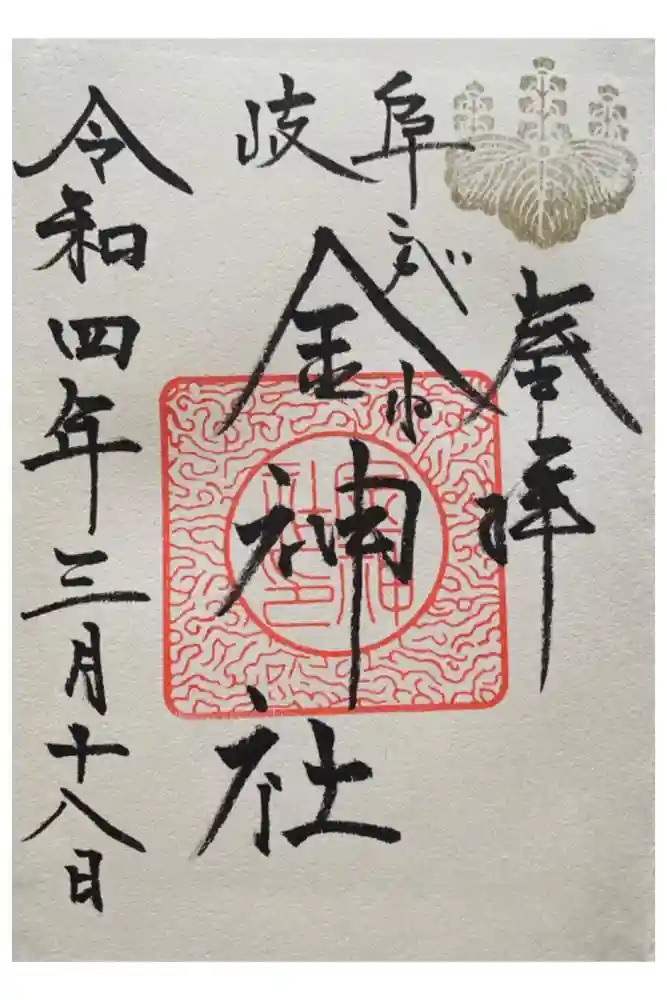 奉拝
岐阜
こがね
金神社
令和四年三月十八日